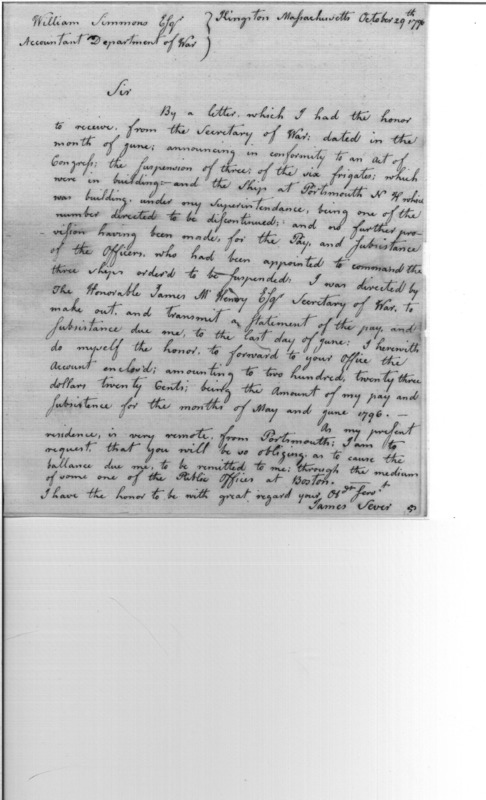 William Simmons Esqr Kingston Massachusetts October 29th 1796
Accountant Department of War
Sir
By a letter, which I had the honor
to receive, from the Secretary of War; dated in the
month of June; announcing in conformity to an Act of
Congress; the suspension of three; of the six frigates; which
were in building and the Ship at Portsmouth N H where
was building, under my Superintendance, being one of the
number directed to be discontinued; and no further pro-
vision having been made, for the Pay, and Subsistance
of the Officers, who had been appointed to command the
three ships order'd to be suspended; I was directed by
The Honorable James McHenry Esqr Secretary of War, to
make out, and transmit a statement of the pay, and
Subsistance due me, to the last day of June; I herewith
do myself the honor, to forward to your Office the
Account enclos'd; amounting to two hundred, twenty three
dollars twenty Cents; being the Amount of my pay and
Subsistence for the months of May and June 1796. —
As my present
residence, is very remote, from Portsmouth; I am to
request, that you will be so obliging as to cause the
ballance due me, to be remitted to me; through the medium
of some one of the Public Offices at Boston.
I have the honor to be with great regard your Obdt Servt
James Sever